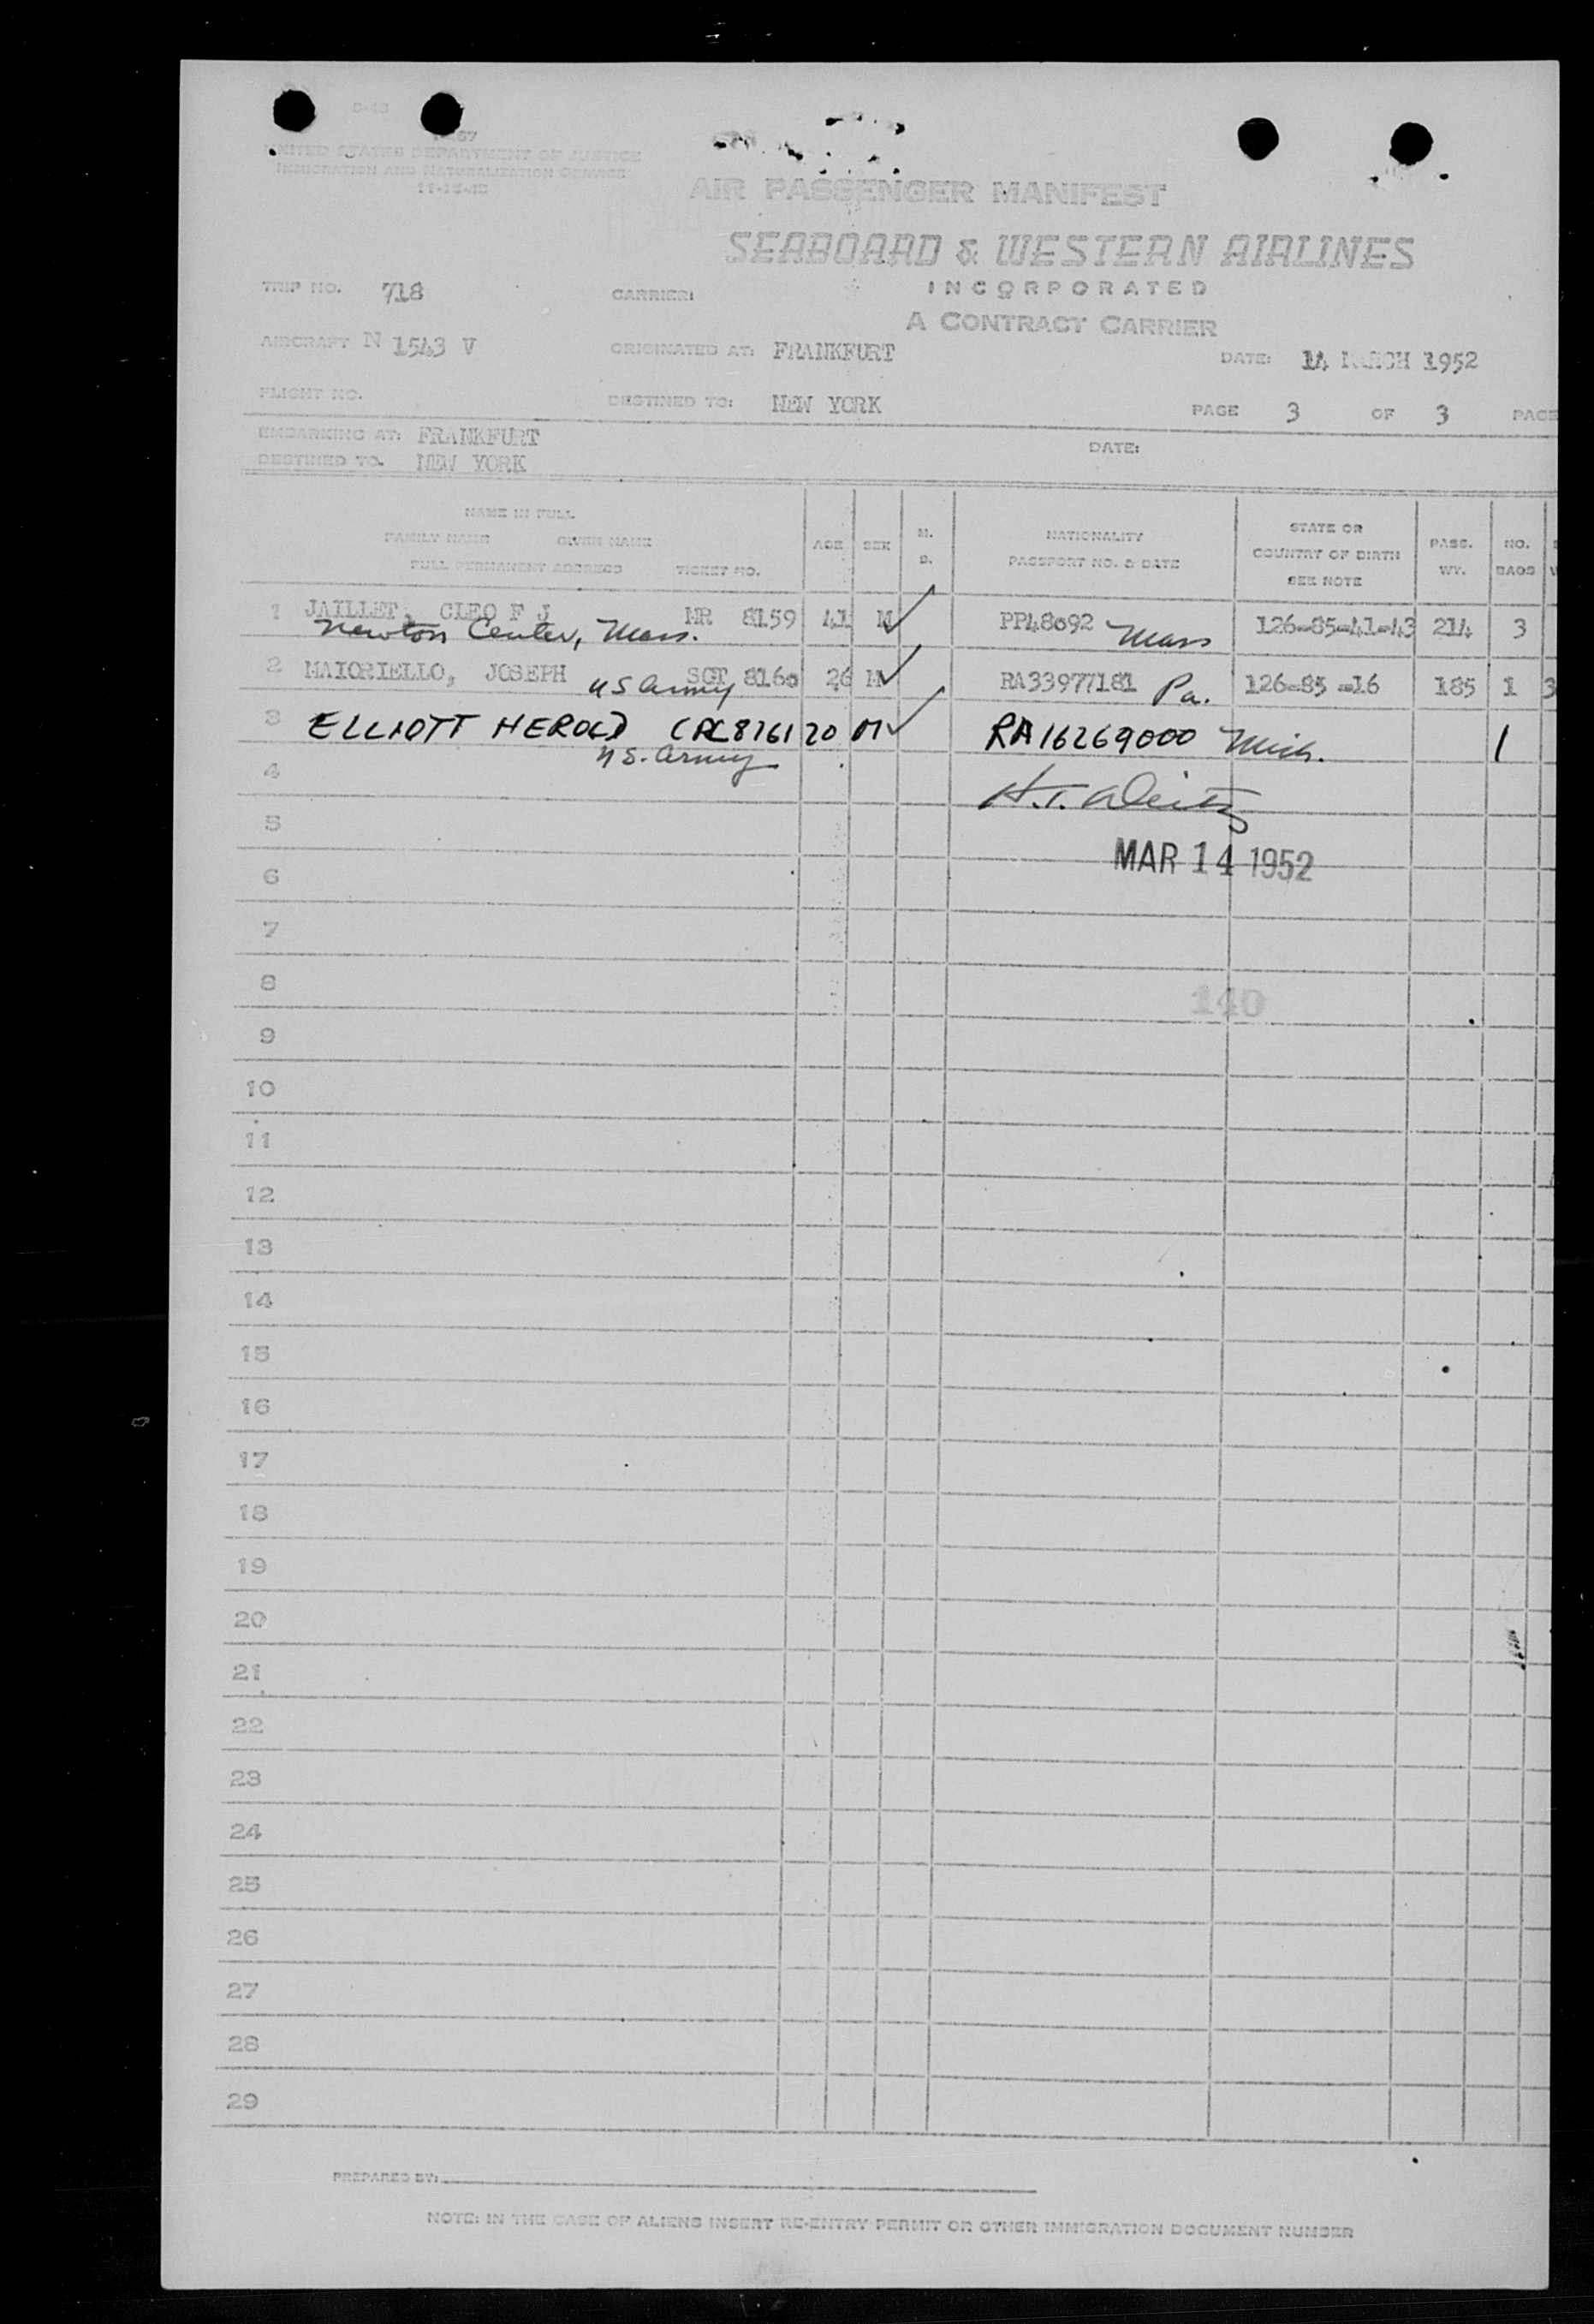 UNITED STATES DEPARTMENT OF JUSTICE
IMMIGRATION AND NATURALIZATION SERVICE
AIR PASSENGER MANIFEST
SEABOARD & WESTERN AIRLINES
INCORPORATED
A CONTRACT CARRIER
TRIP NO. 718 CARRIER:
AIRCRAFT N 1543 V ORIGINATED AT: FRANKFURT DATE: 14 MARCH 1952
FLIGHT NO. DESTINED TO: NEW YORK PAGE 3 OF 3 PAGE
EMBARKING AT: FRANKFURT DATE:
DESTINED TO. NEW YORK
NAME IN FULL
FAMILY NAME GIVEN NAME
FULL PERMANENT ADDRESS TICKET NO.
AGE SEX M. S.
NATIONALITY
PASSPORT NO. & DATE
STATE OR
COUNTRY OF BIRTH
SEE NOTE
PASS. WT.
NO. BAGS
1 JAILLET, CLEO F J MR 8159 41 M PP48092 Mass 126-85-41-43 214 3
Newton Center, Mass.
2 MAIORIELLO, JOSEPH SGT 8160 26 M RA33977181 Pa. 126-85-16 185 1 3
US Army
3 ELLIOTT HEROLD CPL 8161 20 M RA16269000 Mich. 1
US. Army
4
H.T.
5
MAR 14 1952
6
7
8
140
9
10
11
12
13
14
15
16
17
18
19
20
21
22
23
24
25
26
27
28
29
PREPARED BY:
NOTE: IN THE CASE OF ALIENS INSERT RE-ENTRY PERMIT OR OTHER IMMIGRATION DOCUMENT NUMBER